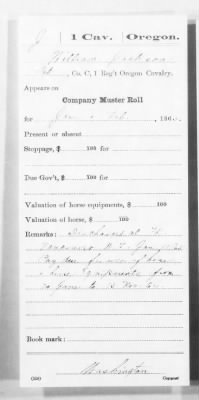 J 1 Cav. Oregon.
William Jackson
Pvt, Co. C, 1 Reg't Oregon Cavalry.
Appears on
Company Muster Roll
for Jan & Feb, 186
Present or absent
Stoppage, $ 100 for
Due Gov't, $ 100 for
Valuation of horse equipments, $ 100
Valuation of horse, $ 100
Remarks: Discharged at Ft.
Vancouver W. T. Jan
Pay due for use of horse
& horse equipments from
to Nov
Book mark:
Washington
(358) Copyist.